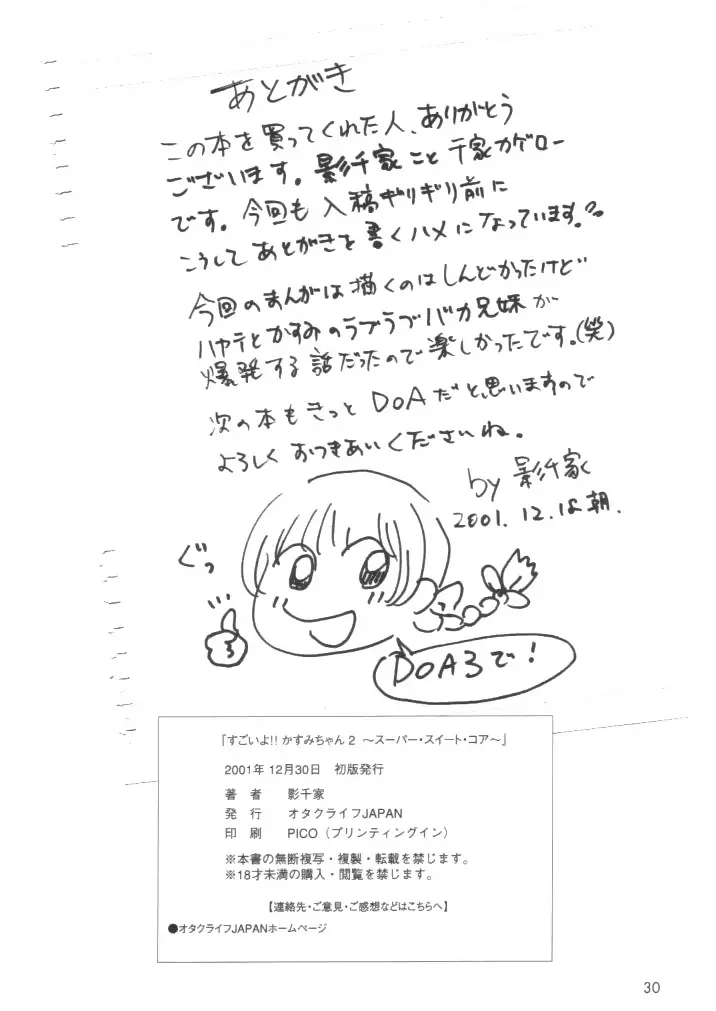 あとがき
この本を買ってくれた人、ありがとう
ございます。影千家こと千家カゲロー
です。今回も入稿ギリギリ前に
こうしてあとがきを書くハメになっています。
今回のまんがは描くのはしんどかったけど
ハヤテとかすみのラブラブバカ兄妹が
爆発する話だったので楽しかったです。(笑)
次の本もきっとDOAだと思いますので
よろしくおつきあいくださいね。
by 影千家
2001.12.18朝.
ぐっ
DOA3で!
『すごいよ!! かすみちゃん2 ～スーパー・スイート・コア～』
2001年12月30日 初版発行
著 者 影千家
発 行 オタクライフJAPAN
印 刷 PICO（プリンティングイン）
※本書の無断複写・複製・転載を禁じます。
※18才未満の購入・閲覧を禁じます。
【連絡先・ご意見・ご感想などはこちらへ】
●オタクライフJAPANホームページ
30